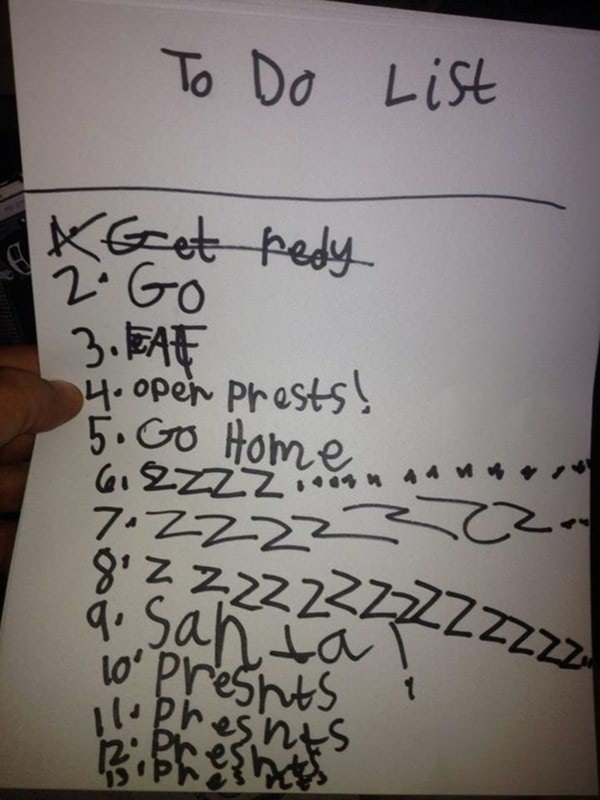 To Do List
1. Get redy
2. Go
3. EAT
4. open prests!
5. Go Home
6. ZZZZ...............
7. ZZZZZZZ...
8. ZZZZZZZZZZZZZZZZ..
9. Santa!
10. Preshts
11. Preshts
12. Preshts
13. Preshts